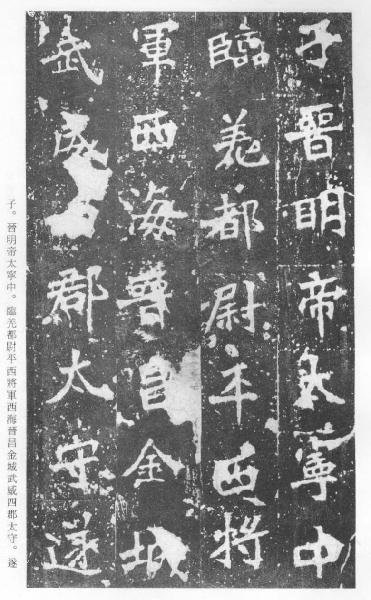 子晉明帝太寧中
臨羌都尉平西將
軍西海晉昌金城
武威郡太守遂
子。晉明帝太寧中。臨羌都尉平西將軍西海晉昌金城武威四郡太守。遂